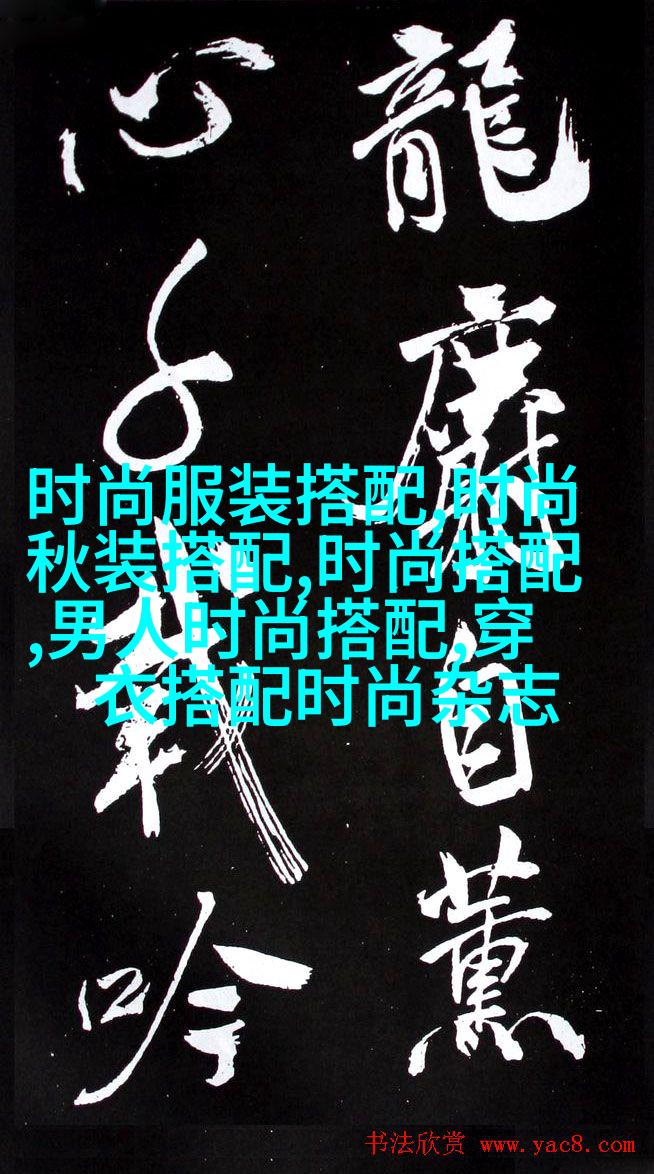 龍自薰
心千載吟
时尚服装搭配,时尚
秋装搭配,时尚搭配
,男人时尚搭配,穿
衣搭配时尚杂志
书法欣赏 www.yac8.com